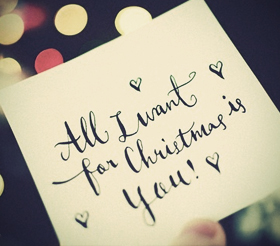 All I want
for Christmas is
You!